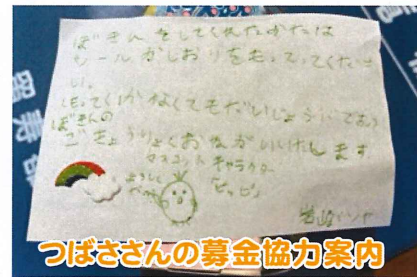 ぼきんをしてくれたかたは
シールかしおりをもってってくださ
い。
もっていかなくてもだいじょうぶです
ぼきんの
ごきょうりょくおねがいします
マスコットキャラクター
「ピッピ」
つばささんの募金協力案内